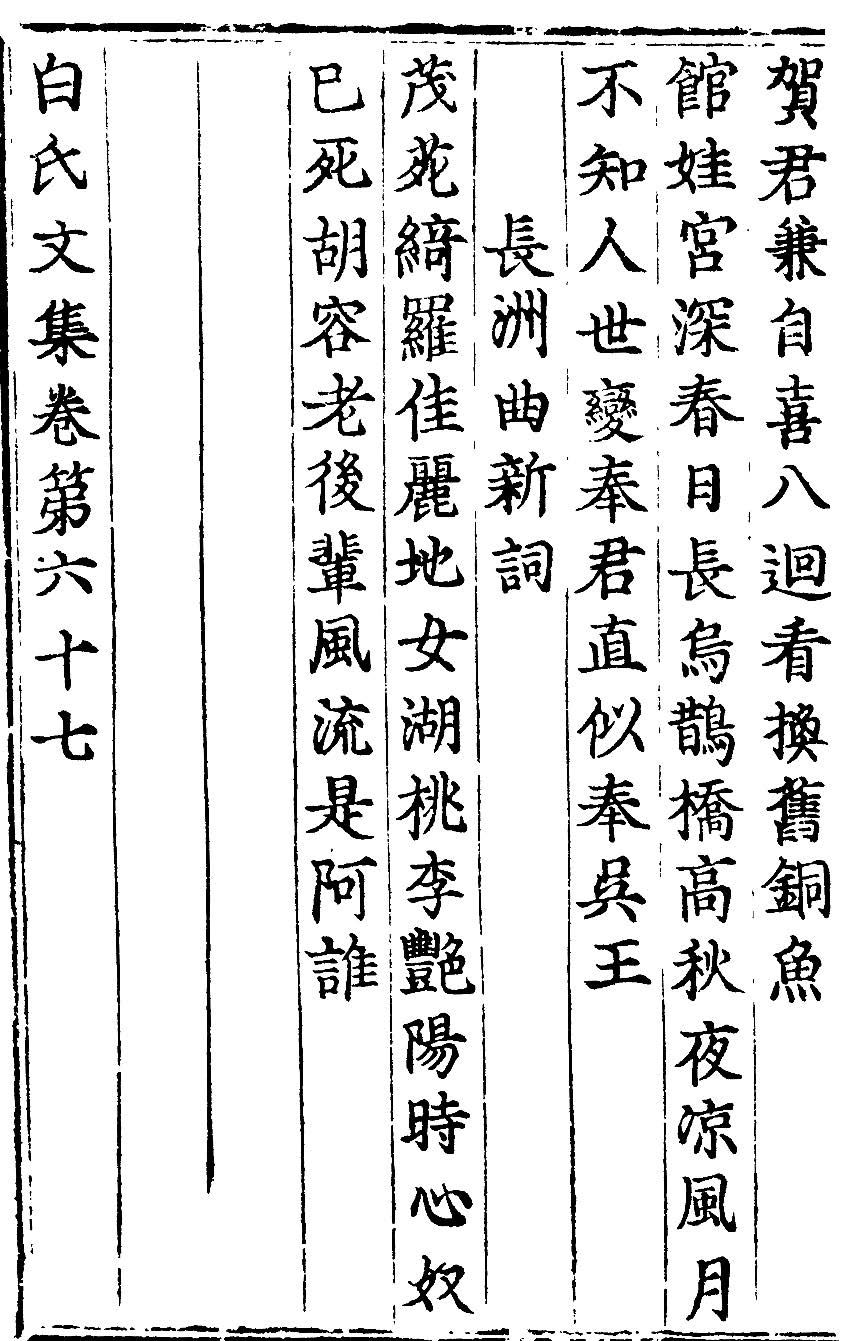 賀君兼自喜八迴看換舊銅魚
館娃宮深春日長烏鵲橋高秋夜凉風月
不知人世變奉君直似奉吳王
長洲曲新詞
茂苑綺羅佳麗地女湖桃李艷陽時心奴
已死胡容老後輩風流是阿誰
白氏文集卷第六十七